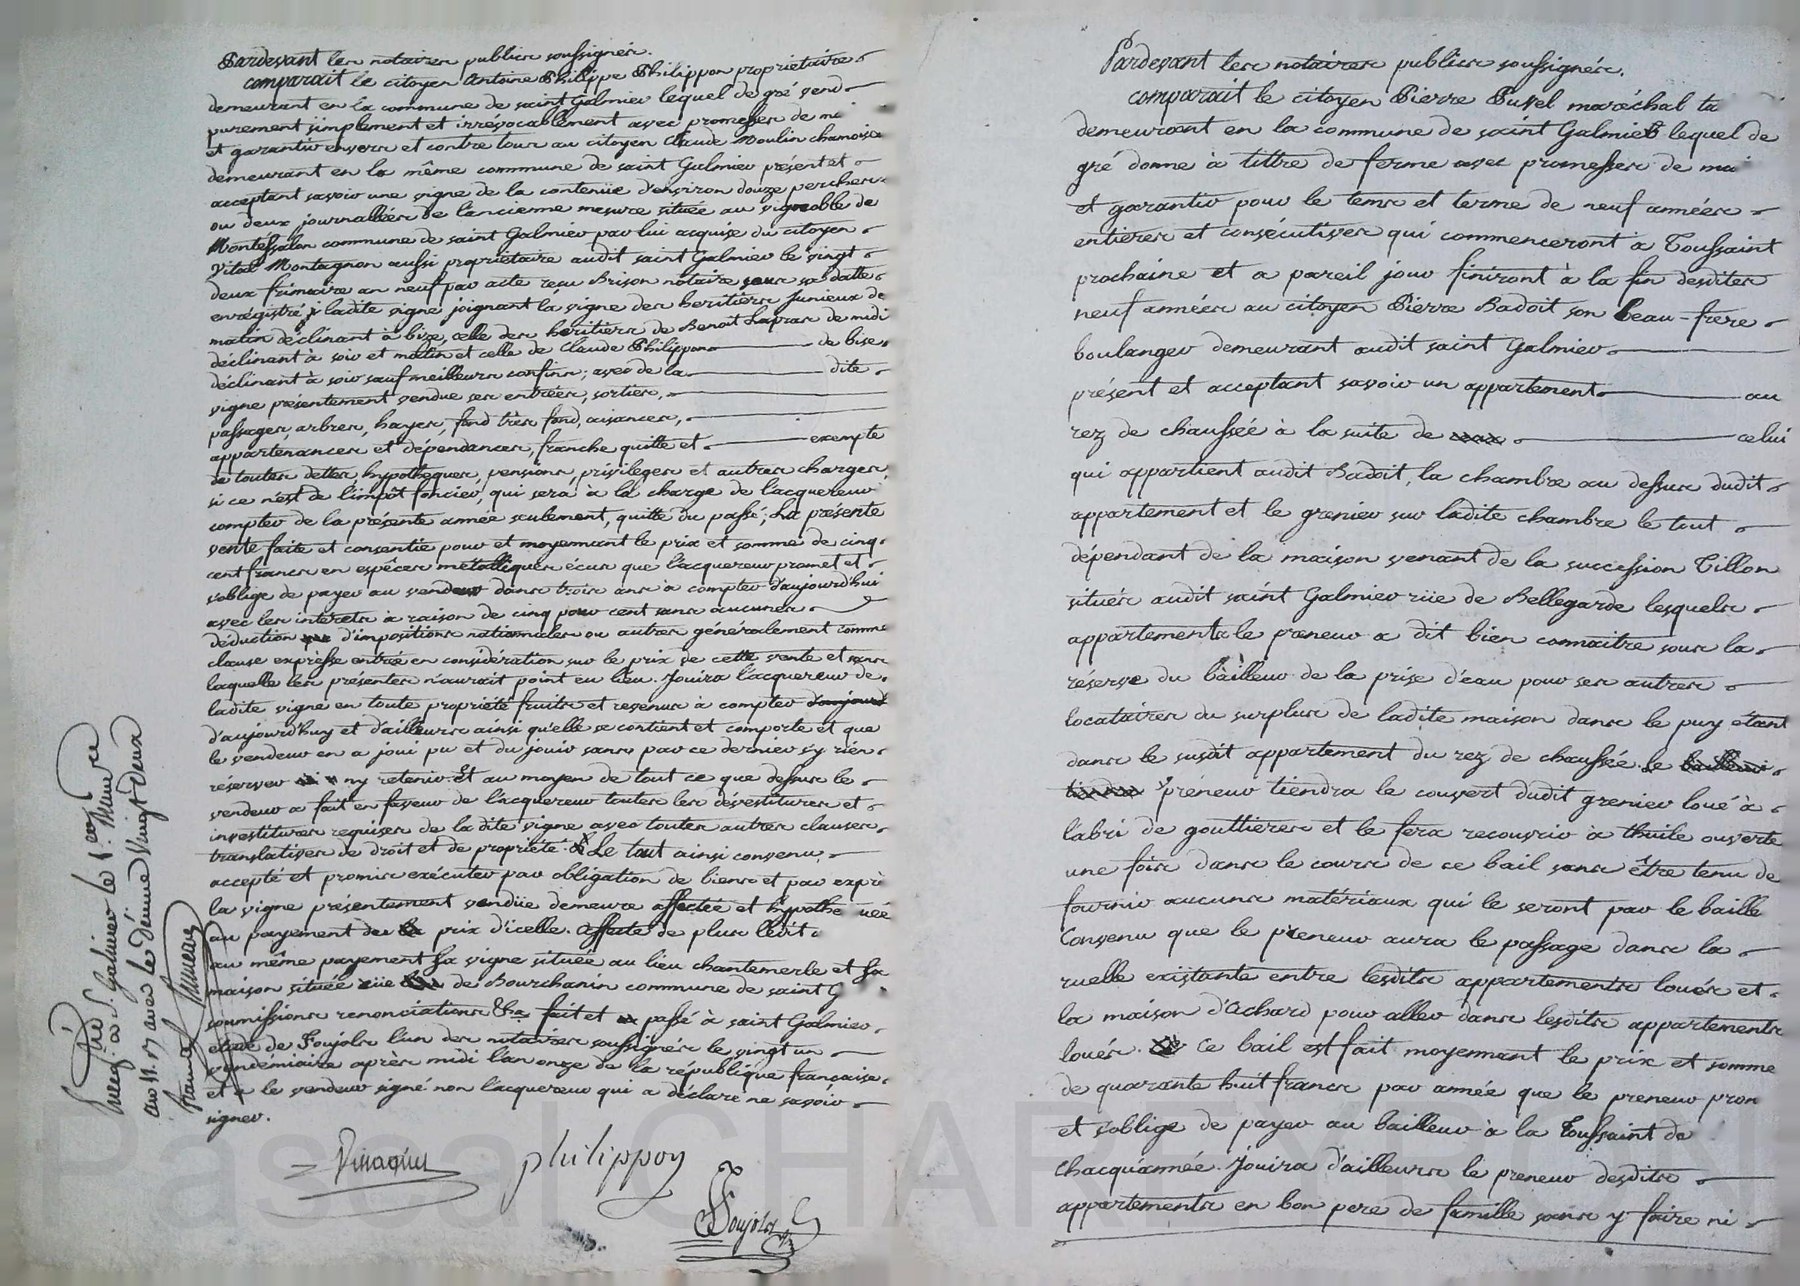 Pardevant les notaires publics soussignés.
comparait le citoyen Antoine Philippe Philippon proprietaire
demeurant en la commune de saint Galmier lequel de gré vend
purement simplement et irrévocablement avec promesses de
et garantir envers et contre tous au citoyen Claude Moulin chamoise
demeurant en la même commune de saint Galmier présent et
acceptant savoir une vigne de la contenüe d'environ douze perches
ou deux journallées de l'ancienne mesure située au vignoble de
commune de saint Galmier par lui acquise du citoyen
Vital Montagnon aussi proprietaire audit saint Galmier le vingt
deux frimaire an neuf par acte reçu Brison notaire sous sa datte
enrégistré ; ladite vigne joignant la vigne des heritiers Junieux de
matin déclinant à bize, celle des heritiers de Benoit Lapras de midi
déclinant à soir et matin et celle de Claude Philippon de bise
déclinant à soir sauf meilleurs confins ; avec de la dite
vigne présentement vendue ses entrées, sorties,
passages, arbres, hayes, fond très fond, aisances,
appartenances et dépendances, franche quitte et exempte
de toutes dettes, hypotheques, pensions, privileges et autres charges
si ce n'est de l'impôt foncier, qui sera à la charge de l'acquereur
compter de la présente année seulement, quitte du passé ; La présente
vente faite et consentie pour et moyennant le prix et somme de cinq
cent francs en espèces métalliques écus que l'acquereur promet et
s'oblige de payer au vendeur dans trois ans à compter d'aujourd'hui
avec les intérêts à raison de cinq pour cent sans aucunes
déduction d'impositions nationales ou autres généralement comme
clause expresse entrée en considération sur le prix de cette vente et sans
laquelle les présentes n'aurait point eu lieu. Jouira l'acquereur de
ladite vigne en toute propriété fruits et revenus à compter
d'aujourd'huy et d'ailleurs ainsi qu'elle se contient et comporte et que
le vendeur en a joui pu et du jouir sans par ce dernier s'y rien
réserver ny retenir. Et au moyen de tout ce que dessus le
vendeur a fait en faveur de l'acquereur toutes les dévestitures et
investitures requises de la dite vigne avec toutes autres clauses
translatives de droit et de propriété. Le tout ainsi convenu,
accepté et promis exécuter par obligation de biens et par exprès
la vigne présentement vendüe demeure affectée et hypothe quée
au payement prix d'icelle. Affecte de plus
au même payement sa vigne située au lieu chantemerle et sa
maison située rüe de Bourchanin commune de saint G
soumissions renonciations fait et passé à saint Galmier
etude de Foujols l'un des notaires soussignés le vingt un
vendémiaire après midi l'an onze de la république française
et a le vendeur signé non l'acquereur qui a déclaré ne savoir
signer.
philippon
Foujols
Enreg. à St. Galmier le 1er Brumaire
an 11.
Pardevant les notaires publics soussignés.
comparait le citoyen Pierre Puvel maréchal ta
demeurant en la commune de saint Galmier lequel de
gré donne à tittre de ferme avec promesses de mai
et garantir pour le tems et terme de neuf années
entieres et consécutives qui commenceront a Toussaint
prochaine et a pareil jour finiront à la fin desdites
neuf années au citoyen Pierre Badoit son beau-frere
boulanger demeurant audit saint Galmier
présent et acceptant savoir un appartement au
rez de chaussée à la suite de celui
qui appartient audit Badoit, la chambre au dessus dudit
appartement et le grenier sur ladite chambre le tout
dépendant de la maison venant de la succession Tillon
située audit saint Galmier rüe de Bellegarde lesquels
appartements le preneur a dit bien connaitre sous la
réserve du bailleur de la prise d'eau pour ses autres
locataires du surplus de ladite maison dans le puy étant
dans le susdit appartement du rez de chaussée. Le
préneur tiendra le couvert dudit grenier loué à
l'abri de gouttieres et le fera recouvrir à thuile ouverte
une fois dans le cours de ce bail sans être tenu de
fournir aucuns matériaux qui le seront par le baille
Convenu que le preneur aura le passage dans la
ruelle existante entre lesdits appartements loués et
la maison d'Achard pour aller dans lesdits appartements
loués. Ce bail est fait moyennant le prix et somme
de quarante huit francs par année que le preneur prom
et s'oblige de payer au bailleur à la Toussaint de
chacqu'année. Jouira d'ailleurs le preneur desdits
appartements en bon pere de famille sans y faire ni
Pascal CHAREYRON